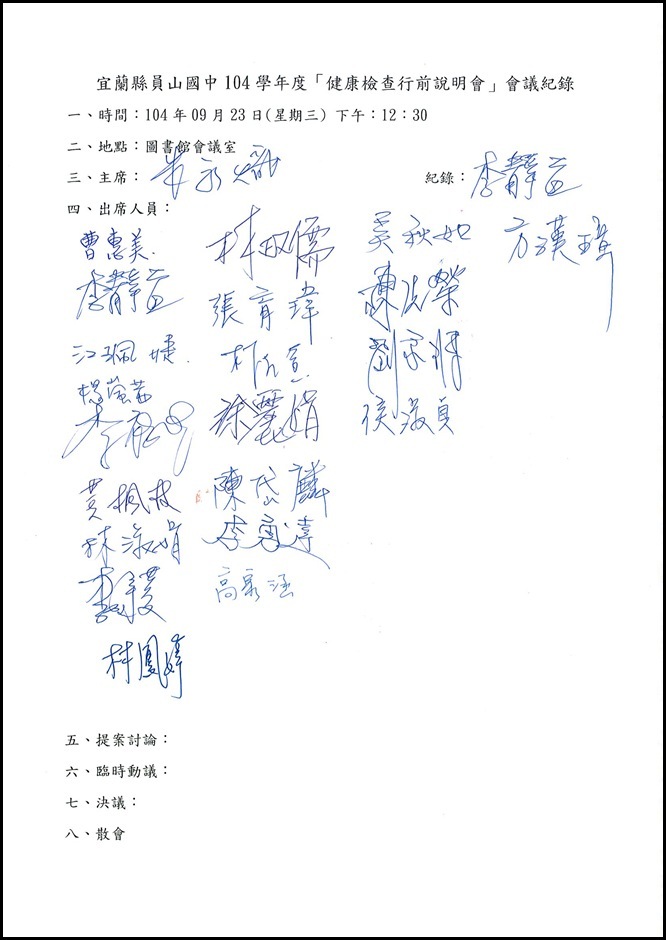 宜蘭縣員山國中104學年度「健康檢查行前說明會」會議紀錄
一、時間：104年09月23日(星期三) 下午：12：30
二、地點：圖書館會議室
三、主席： 紀錄：李靜宜
四、出席人員：
曹惠美 吳秋如 方漢瑋
李靜宜 張育瑋
江珮婕 劉家輝
楊螢茜 徐麗娟 侯淑貞
黃楓枝 陳岱麟
林淑娟 李勇淳
高家涵
林鳳婷
五、提案討論：
六、臨時動議：
七、決議：
八、散會